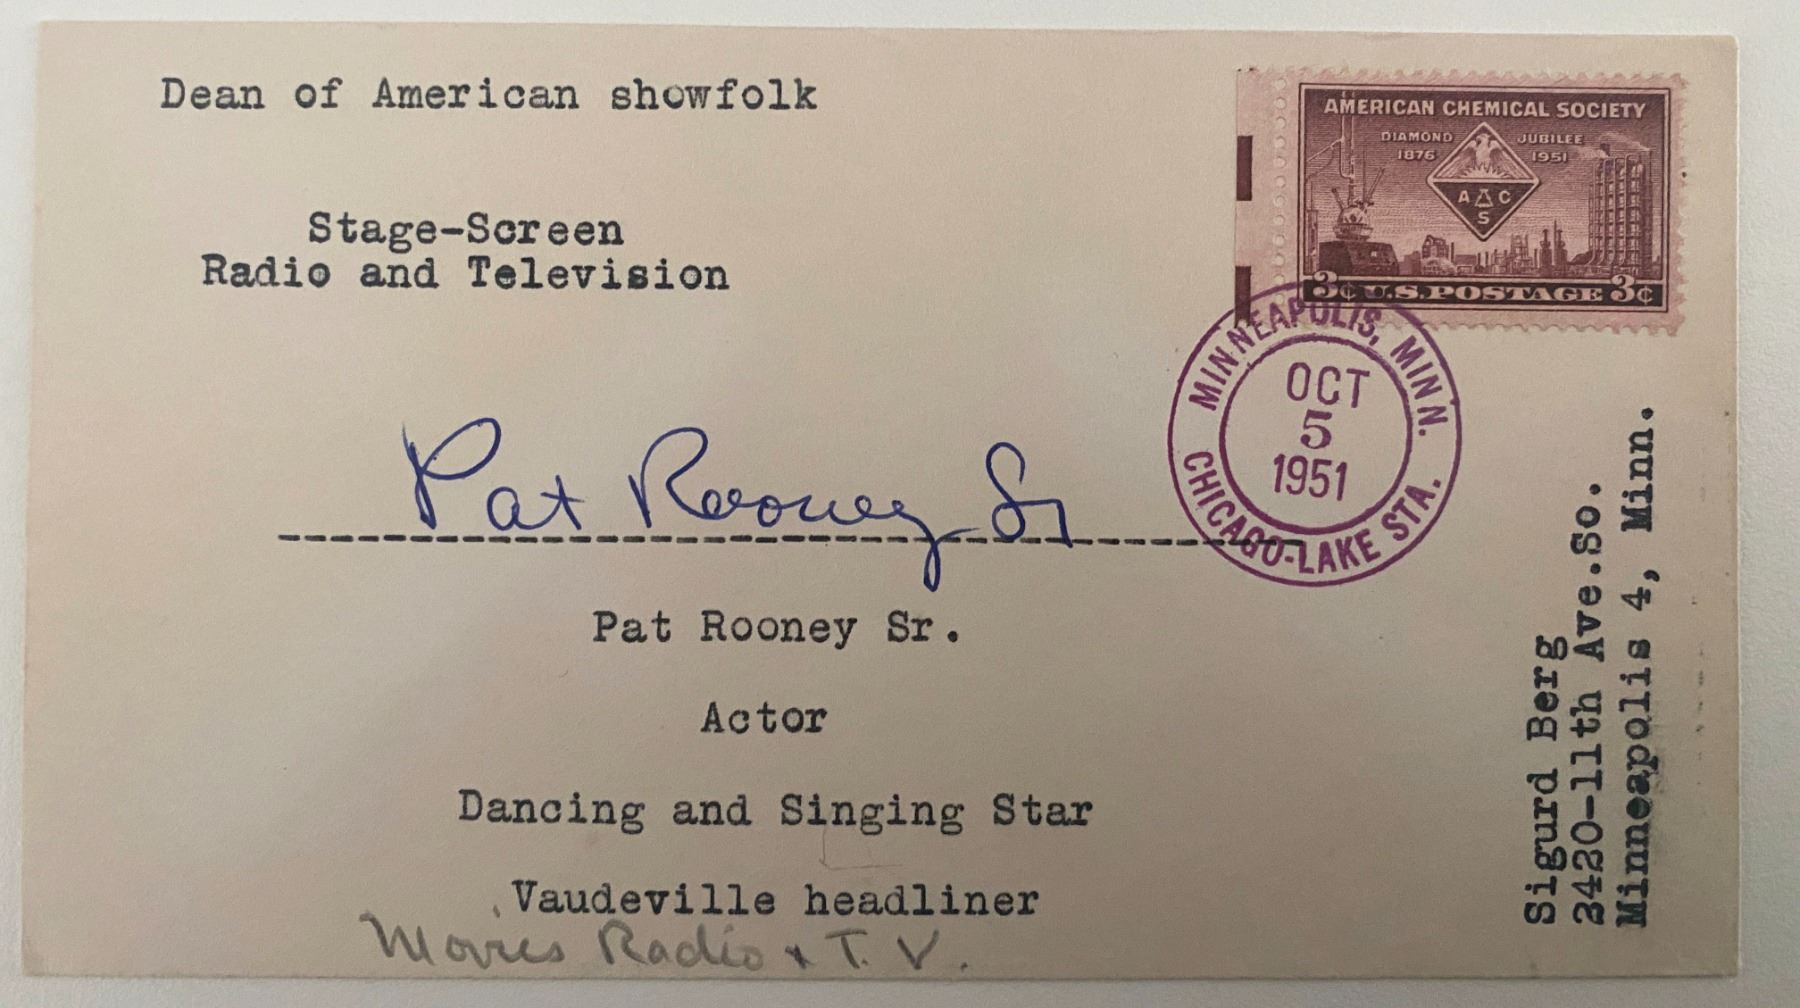 Dean of American showfolk
Stage-Screen
Radio and Television
AMERICAN CHEMICAL SOCIETY
DIAMOND JUBILEE
1876 1951
A C
S
3¢ U.S. POSTAGE 3¢
MINNEAPOLIS, MINN.
OCT
5
1951
CHICAGO-LAKE STA.
Pat Rooney Sr
Pat Rooney Sr.
Actor
Dancing and Singing Star
Vaudeville headliner
Movies Radio + T. V.
Sigurd Berg
3420-11th Ave.So.
Minneapolis 4, Minn.